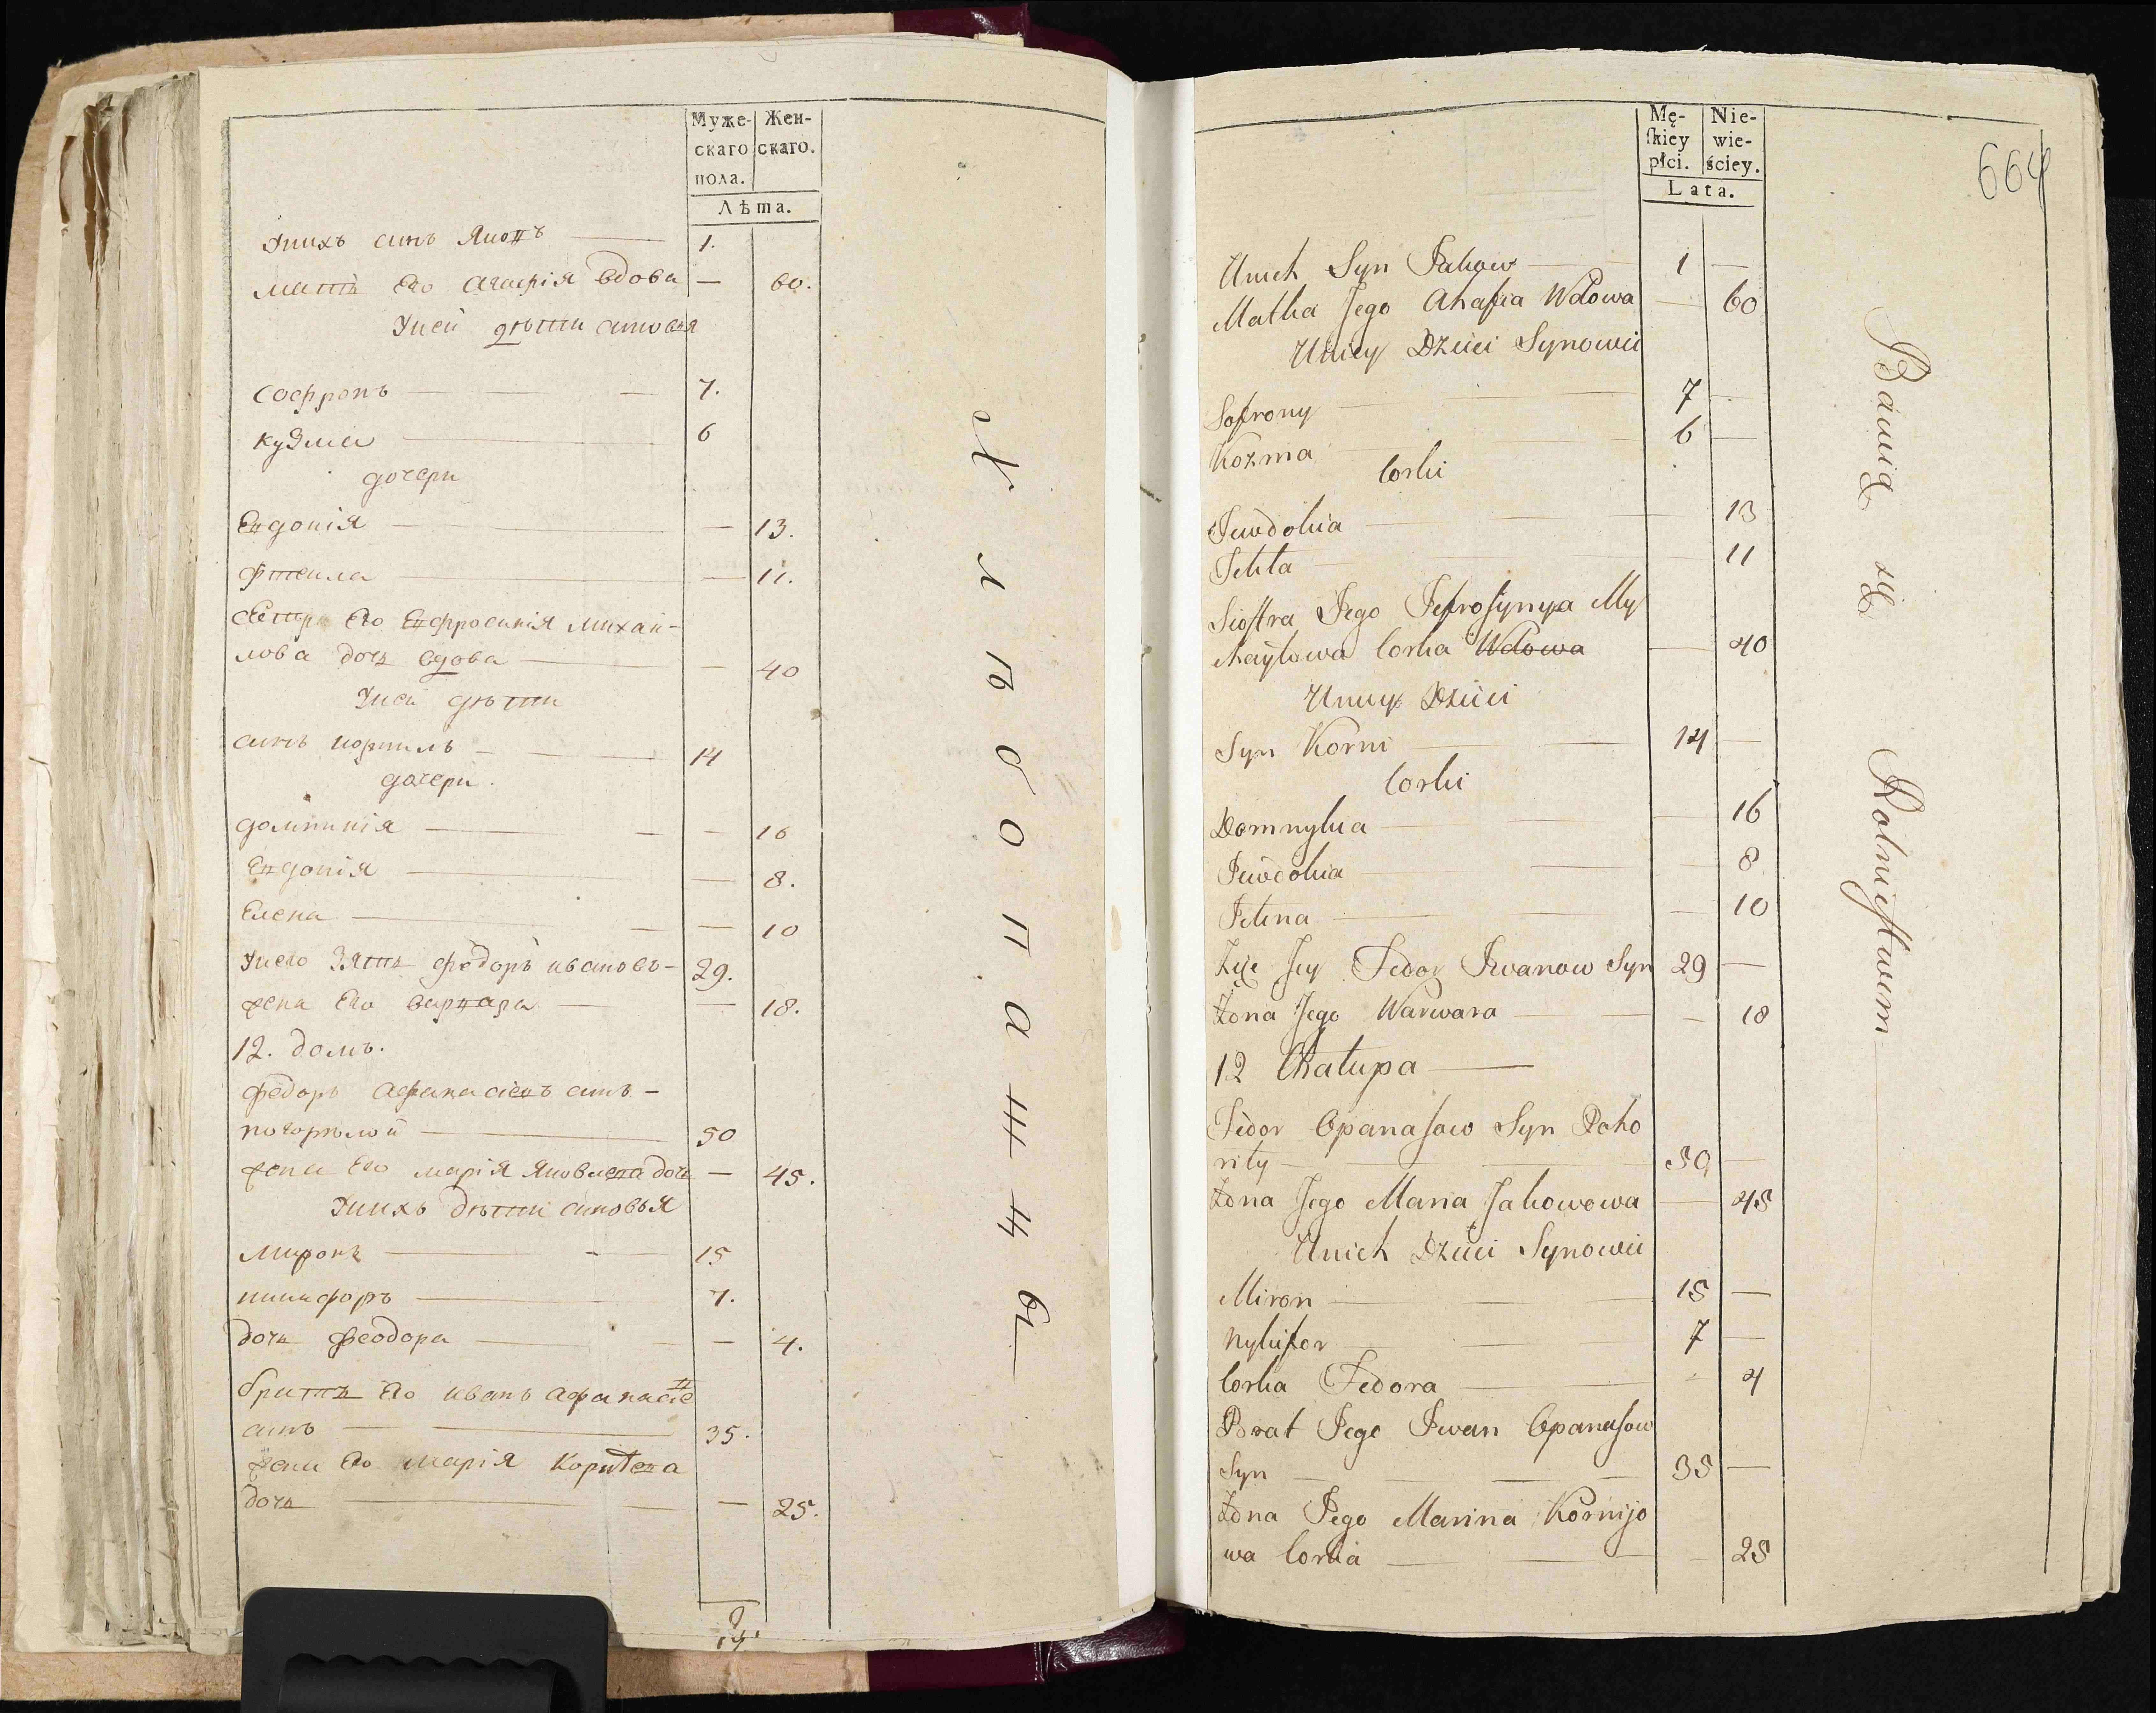 Муже-
скаго
пола.
Жен-
скаго.
Лѣта.
Унихъ синъ Яковъ 1.
мать Его агафія вдова — 60.
Уней дѣти синовья
софронъ 7.
кузма 6
дочери
Евдокія — 13.
фтекла — 11.
сестра Его Евфросинія михай-
лова дочь вдова — 40
Уней дѣти
синъ корнилъ 14
дочери.
домникія — 16
Евдокія — 8.
Елена — 10
Унего зять федоръ ивановъ 29.
жена Его варвара — 18.
12. домъ.
федоръ афанасіевъ синъ
погорѣлой 50
жена Его марія Яковлева дочь — 45.
Унихъ дѣти синовья
миронъ 15
никифоръ 7.
дочь феодора — 4.
братъ Его иванъ афанасіев
синъ 35.
жена Его марія Корнѣева
дочь — 25.
Хлѣбопашцы
Mę-
skiey
płci.
Nie-
wie-
ściey.
Lata.
664
Unich Syn Jakow 1 —
Matka Jego Ahafia Wdowa — 60
Uniey Dzieci Synowie
Sofrony 7 —
Kozma 6 —
Corki
Jewdokia 13
Tekla 11
Siostra Jego Jefrosynya My
chayłowa Corka Wdowa — 40
Uniey Dzieci
Syn Korni 14 —
Corki
Domnykia — 16
Jewdokia — 8
Jelena — 10
Zięc Jey Fedor Iwanow Syn 29 —
Żona Jego Warwara — 18
12 Chałupa
Fedor Opanasow Syn Poho
riły 50 —
Żona Jego Maria Jakowowa — 45
Unich Dzieci Synowie
Miron 15 —
Nykifor 7 —
Corka Fedora - 4
Brat Jego Iwan Opanasow
Syn 35 —
Żona Jego Marina Kornijo
wa Corka — 25
Bawią się Rolnictwem